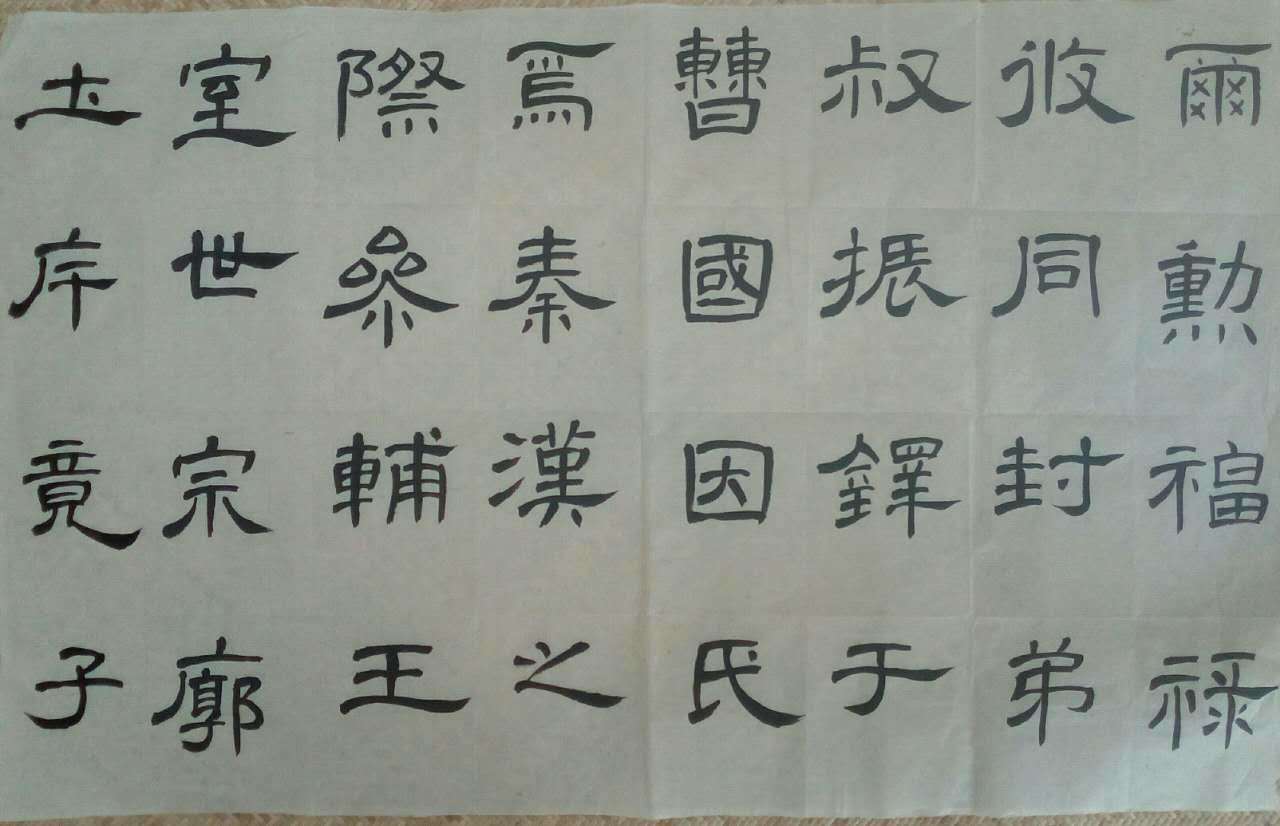 爾勳福祿
攸同封弟
叔振鐸于
曹國因氏
焉秦漢之
際參輔王
室世宗廓
土斥竟子